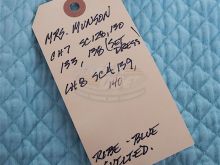 MRS. MUNSON
CH7 SC128,130
133, 138 (SET
DRESS)
CH8 SCH 139,
140
ROBE - BLUE
QUILTED.